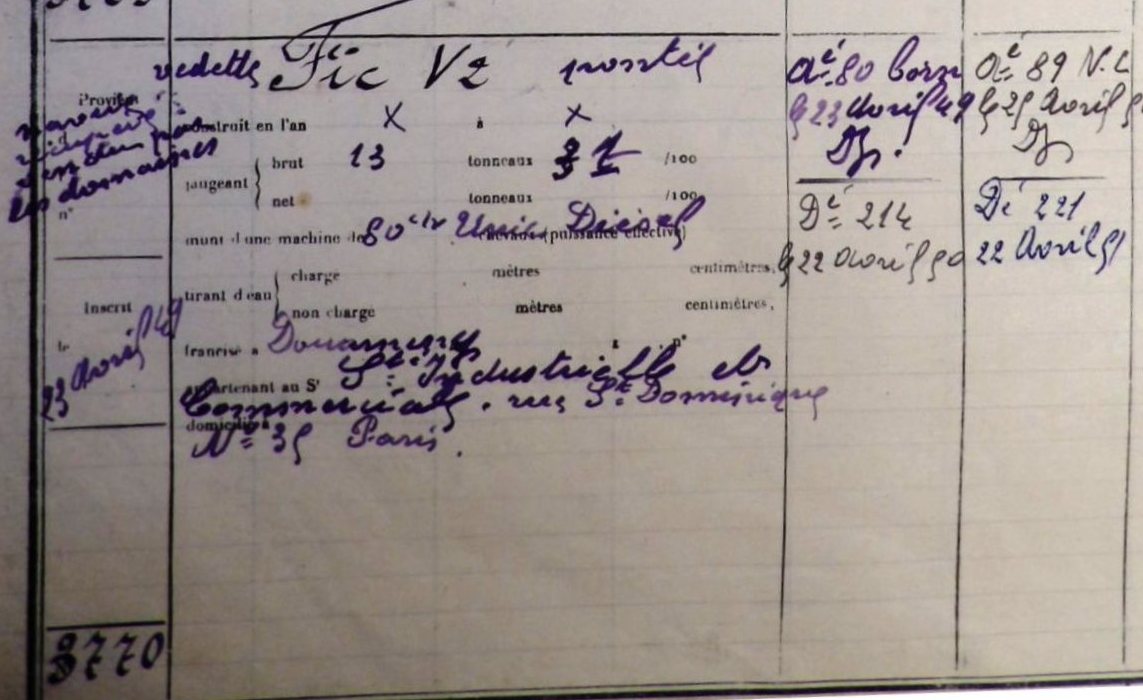 vedette Fic V2 pontée
Provient
construit en l'an X à X
navire
vendu par
les domaines
n°
jaugeant { brut 13 tonneaux 31 /100
net tonneaux /100
muni d'une machine de 80 cv Unic Diésel chevaux (puissance effective)
tirant d'eau { charge mètres centimètres,
non charge mètres centimètres,
Inscrit
le
23 Avril 49
francisé à Douarnenez à n°
appartenant au Sr Sté Industrielle et
Commerciale, rue St Dominique
domicilié à
N° 35 Paris.
Aé 80 Corn
le 23 Avril 49
Dé 214
le 22 Avril 50
Aé 89 N.C
le 25 Avril
Dé 221
22 Avril 51
3770